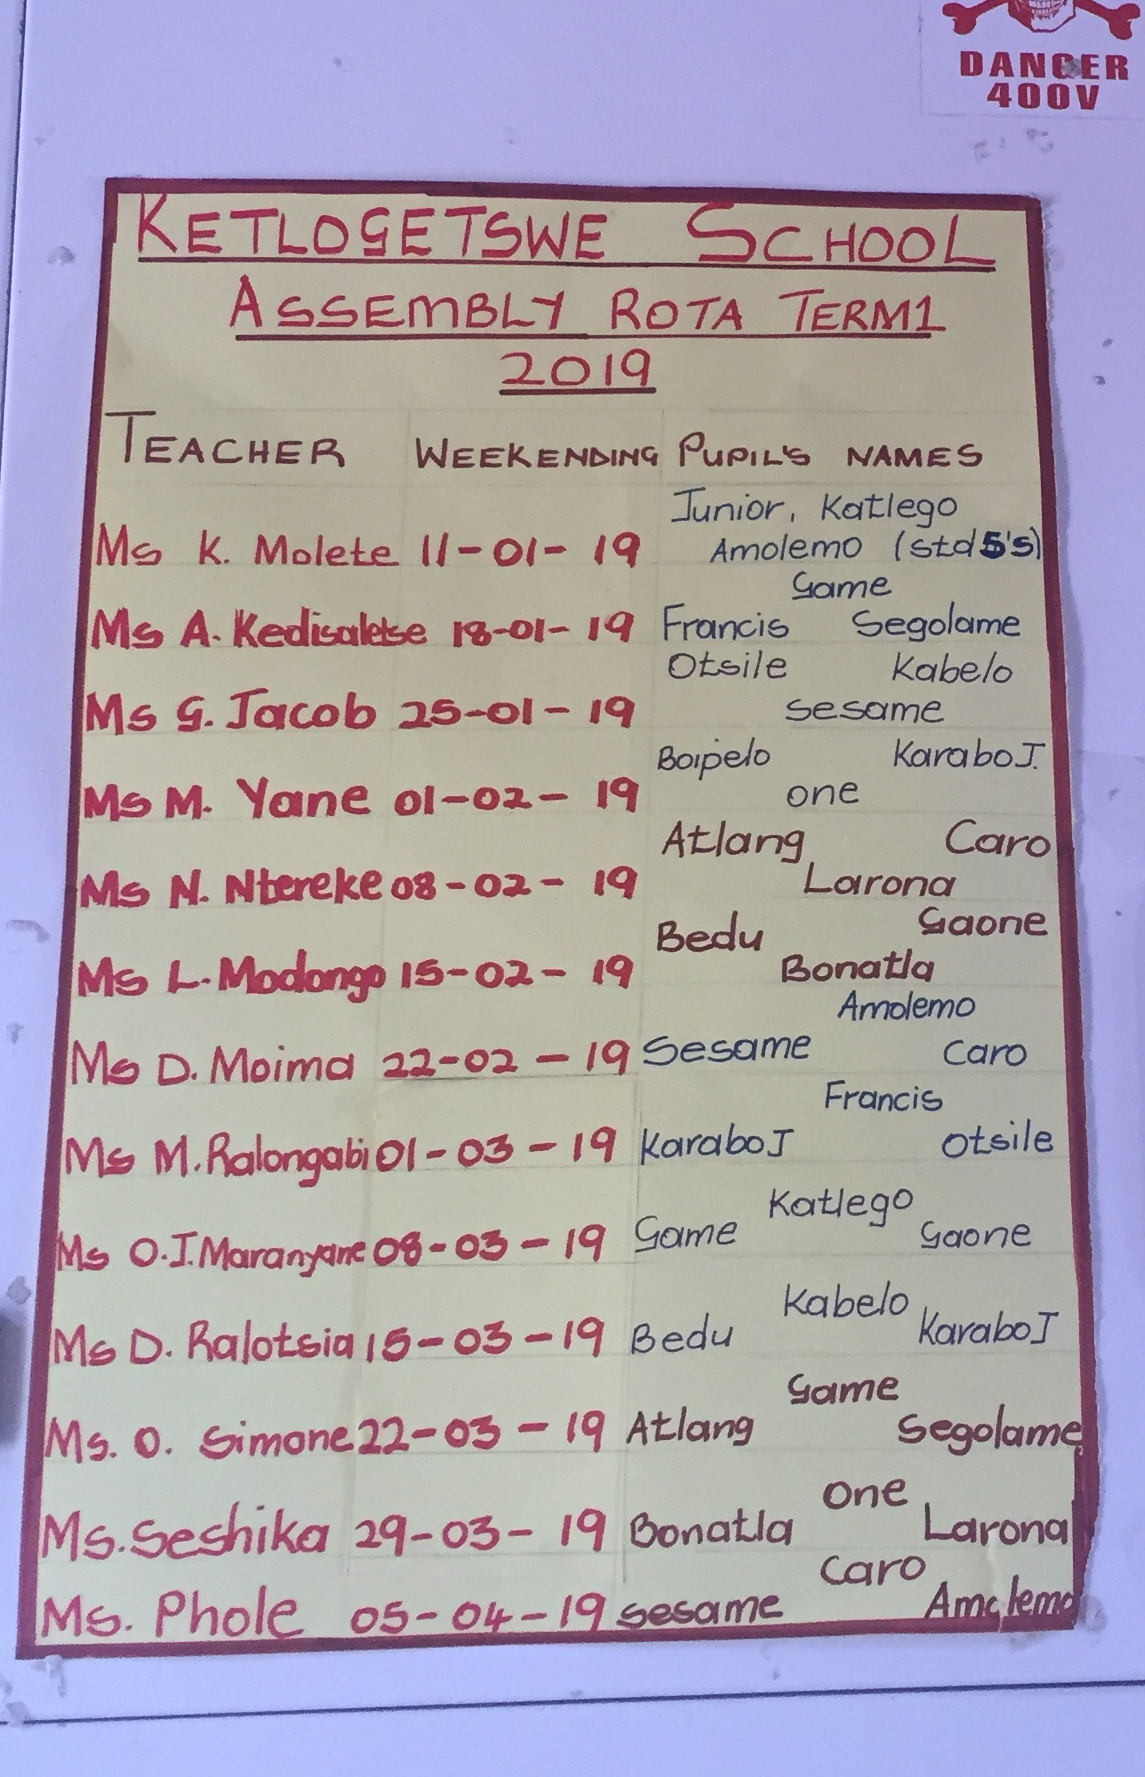 DANGER
400V
KETLOGETSWE SCHOOL
ASSEMBLY ROTA TERM1
2019
TEACHER WEEKENDING PUPIL'S NAMES
Junior, Katlego
Ms K. Molete 11-01-19 Amolemo (std5's)
Game
Ms A. Kedisaletse 18-01-19 Francis Segolame
Otsile Kabelo
Ms G. Jacob 25-01-19 Sesame
Boipelo Karabo J.
Ms M. Yane 01-02-19 one
Atlang Caro
Ms N. Ntereke 08-02-19 Larona
Bedu Gaone
Ms L. Modongo 15-02-19 Bonatla
Amolemo
Ms D. Moima 22-02-19 Sesame Caro
Francis
Ms M. Ralongabi 01-03-19 Karabo J Otsile
Katlego
Ms O.J. Maranyane 08-03-19 Game Gaone
Kabelo
Ms D. Ralotsia 15-03-19 Bedu Karabo J
Game
Ms. O. Simone 22-03-19 Atlang Segolame
One
Ms. Seshika 29-03-19 Bonatla Larona
Caro
Ms. Phole 05-04-19 Sesame Amolemo